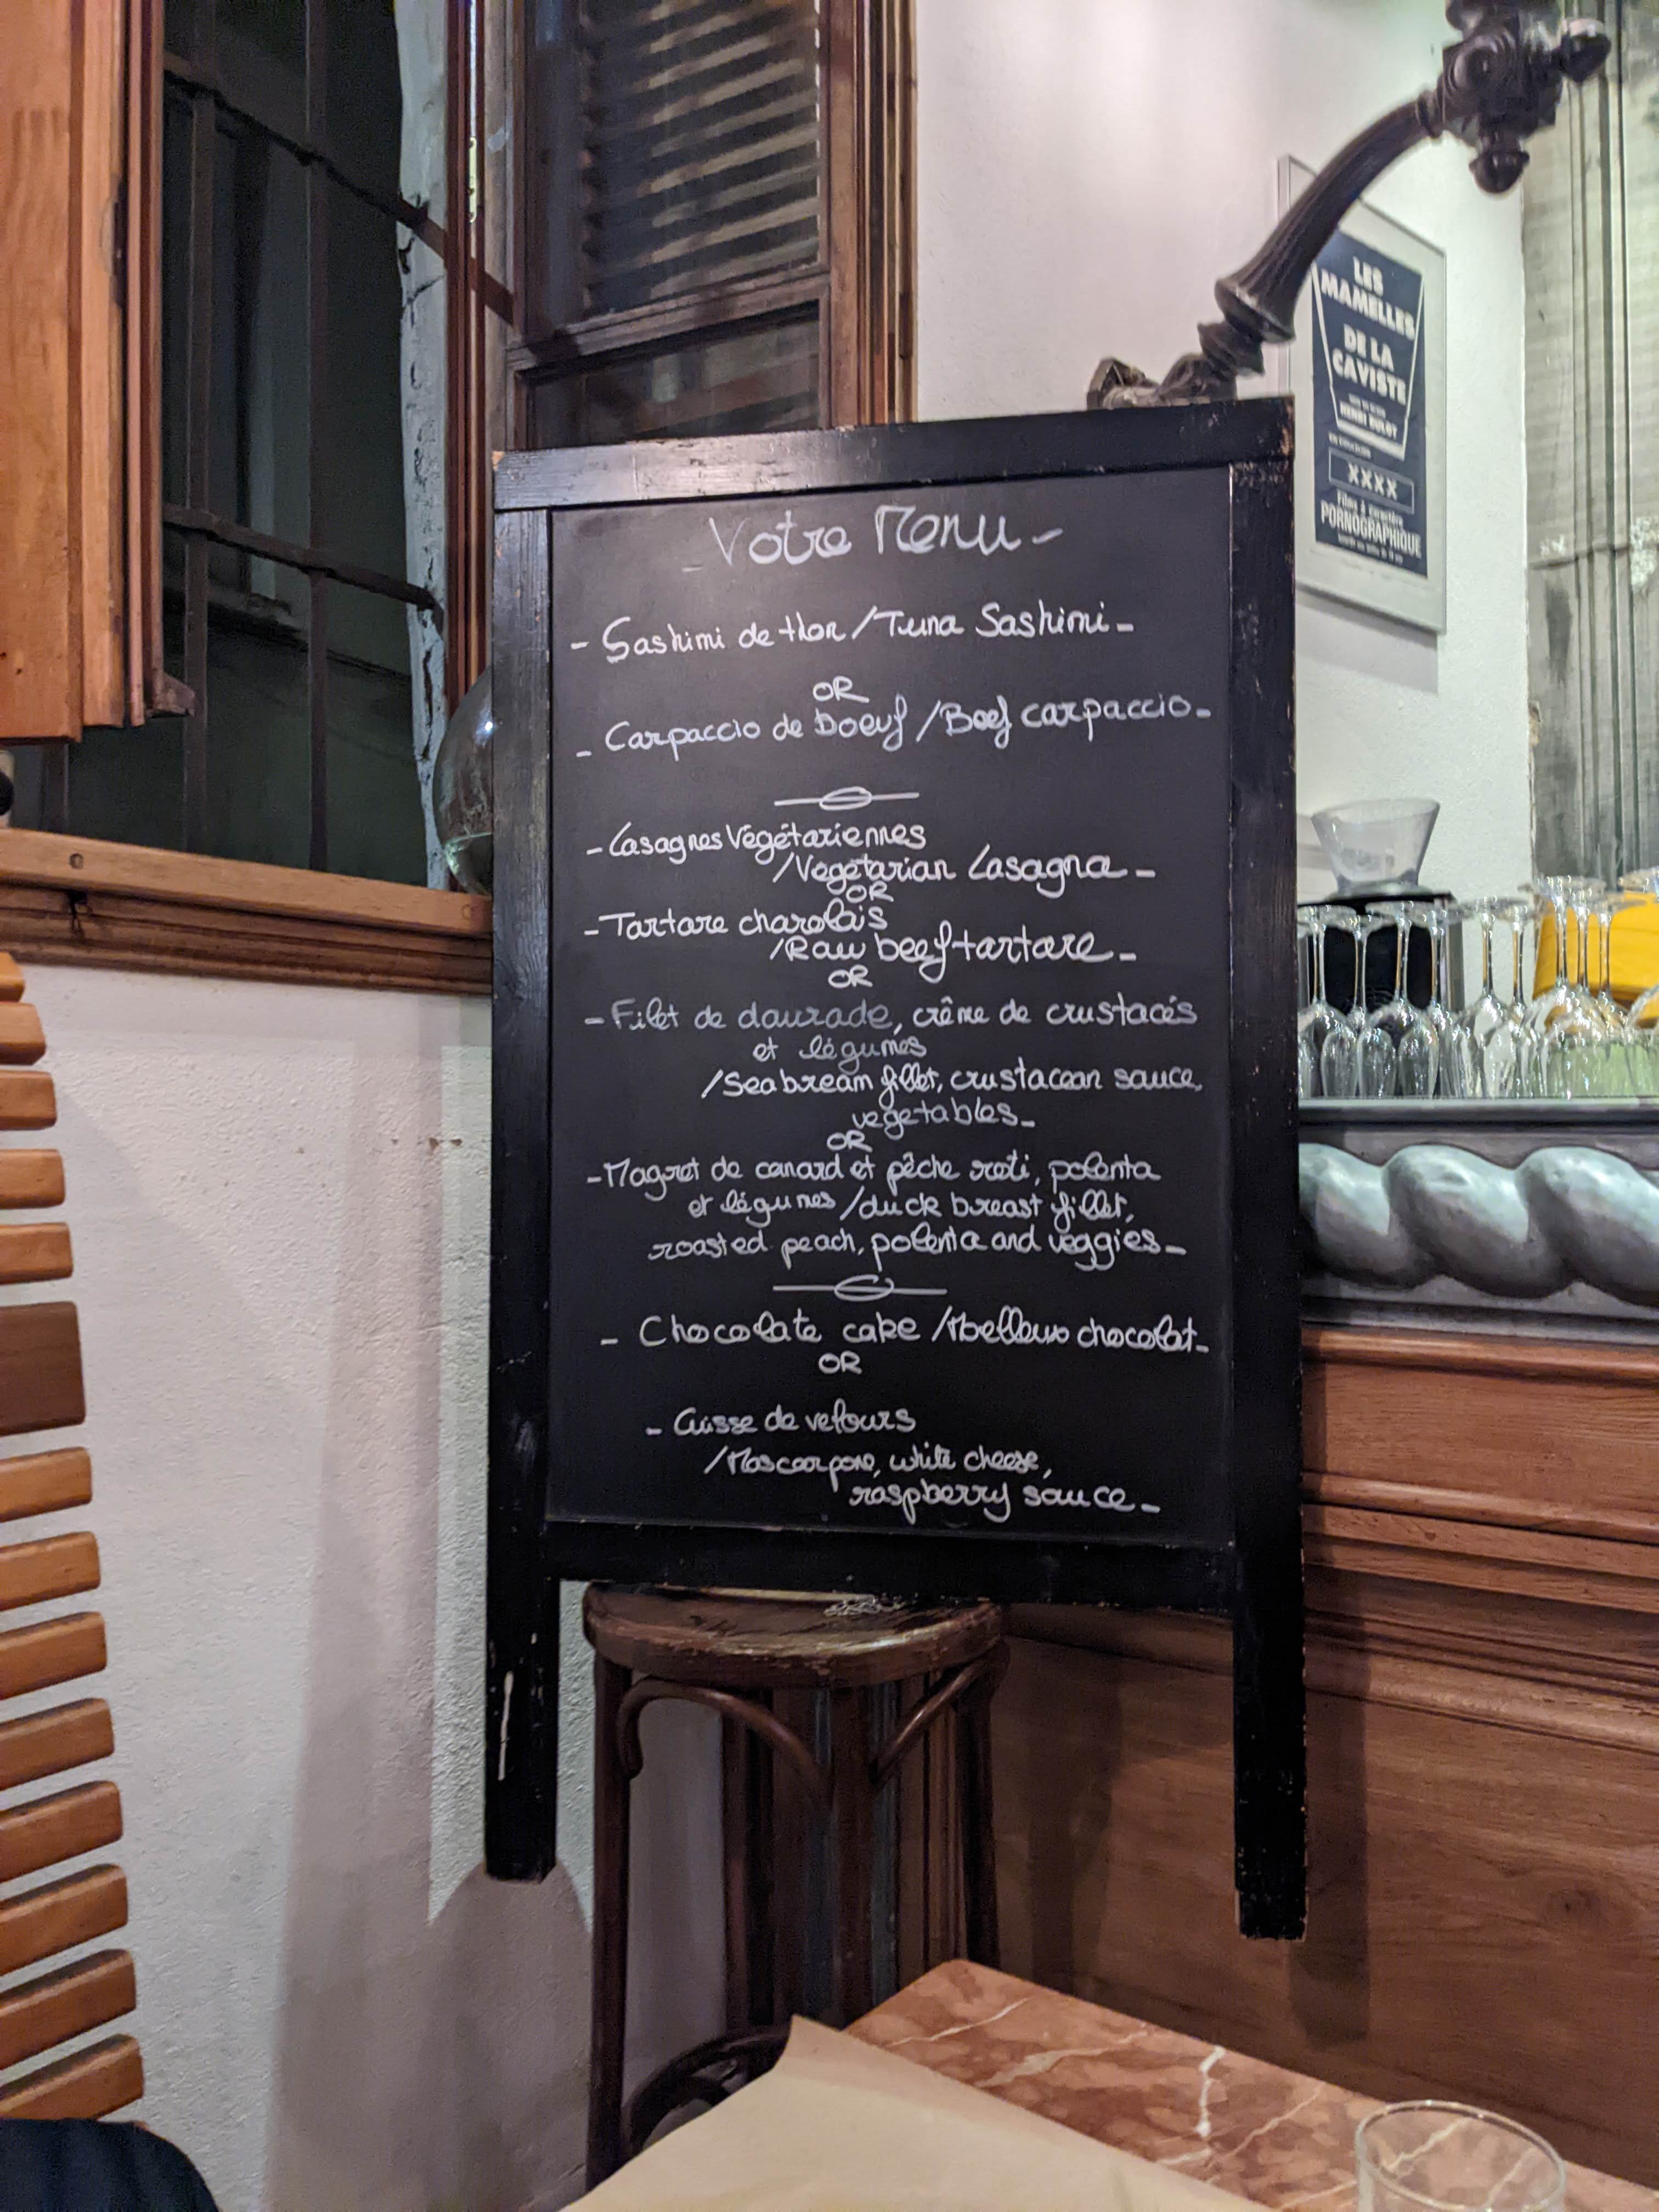 LES
MAMELLES
DE LA
CAVISTE
HENRI BULOT
XXXX
Film à caractère
PORNOGRAPHIQUE
- Votre Menu -
- Sashimi de thon / Tuna Sashimi -
OR
- Carpaccio de boeuf / Beef carpaccio -
- Lasagnes Végétariennes
/ Vegetarian Lasagna -
OR
- Tartare charolais
/ Raw beef tartare -
OR
- Filet de daurade, crème de crustacés
et légumes
/ Sea bream fillet, crustacean sauce,
vegetables -
OR
- Magret de canard et pêche roti, polenta
et légumes / duck breast fillet,
roasted peach, polenta and veggies -
- Chocolate cake / Moelleux chocolat -
OR
- Cuisse de velours
/ Mascarpone, white cheese,
raspberry sauce -